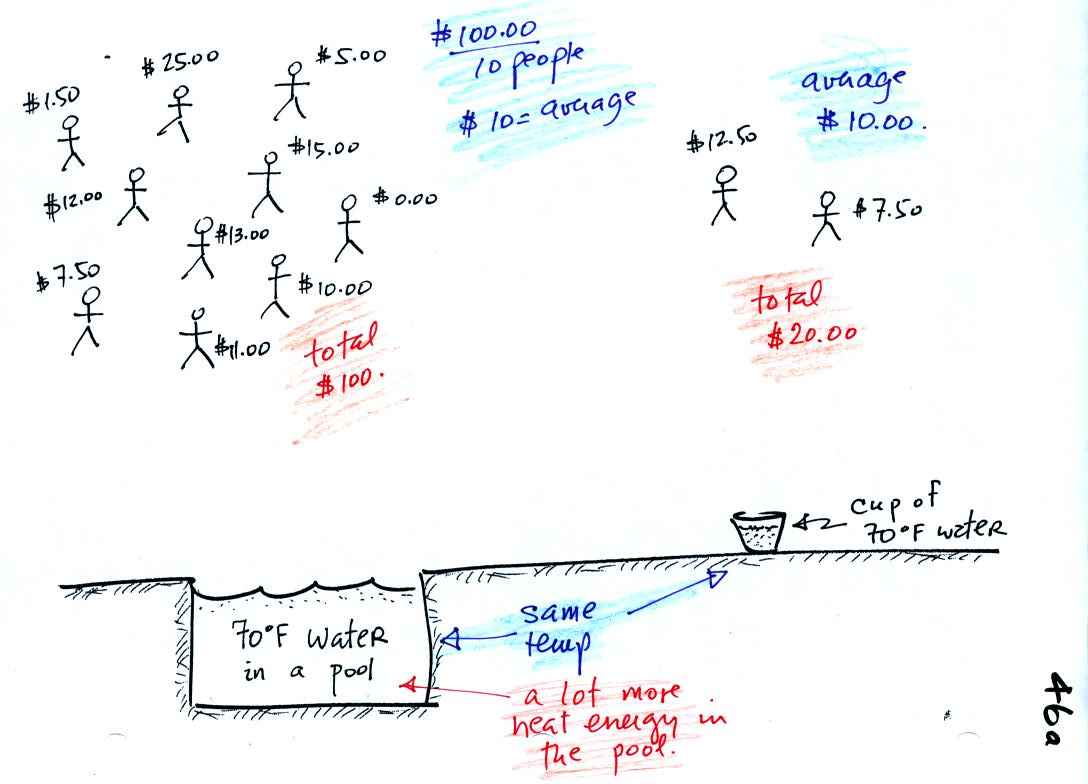 $1.50
$25.00
$5.00
$12.00
$15.00
$0.00
$13.00
$7.50
$10.00
$11.00
total
$100.
$100.00
10 people
$10 = average
average
$10.00.
$12.50
$7.50
total
$20.00
cup of
70°F water
70°F water
in a pool
same
temp
a lot more
heat energy in
the pool.
46a